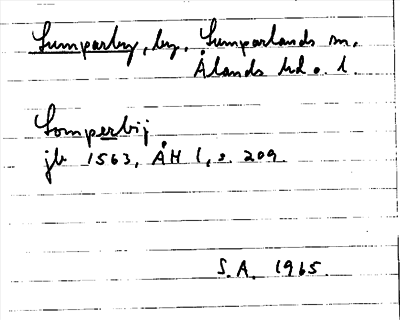 Sumparby, by, Sumparlands sn.
Ålands hd o. l.
Somperbij
jb 1563, ÅH 1, s. 209.
S.A. 1965